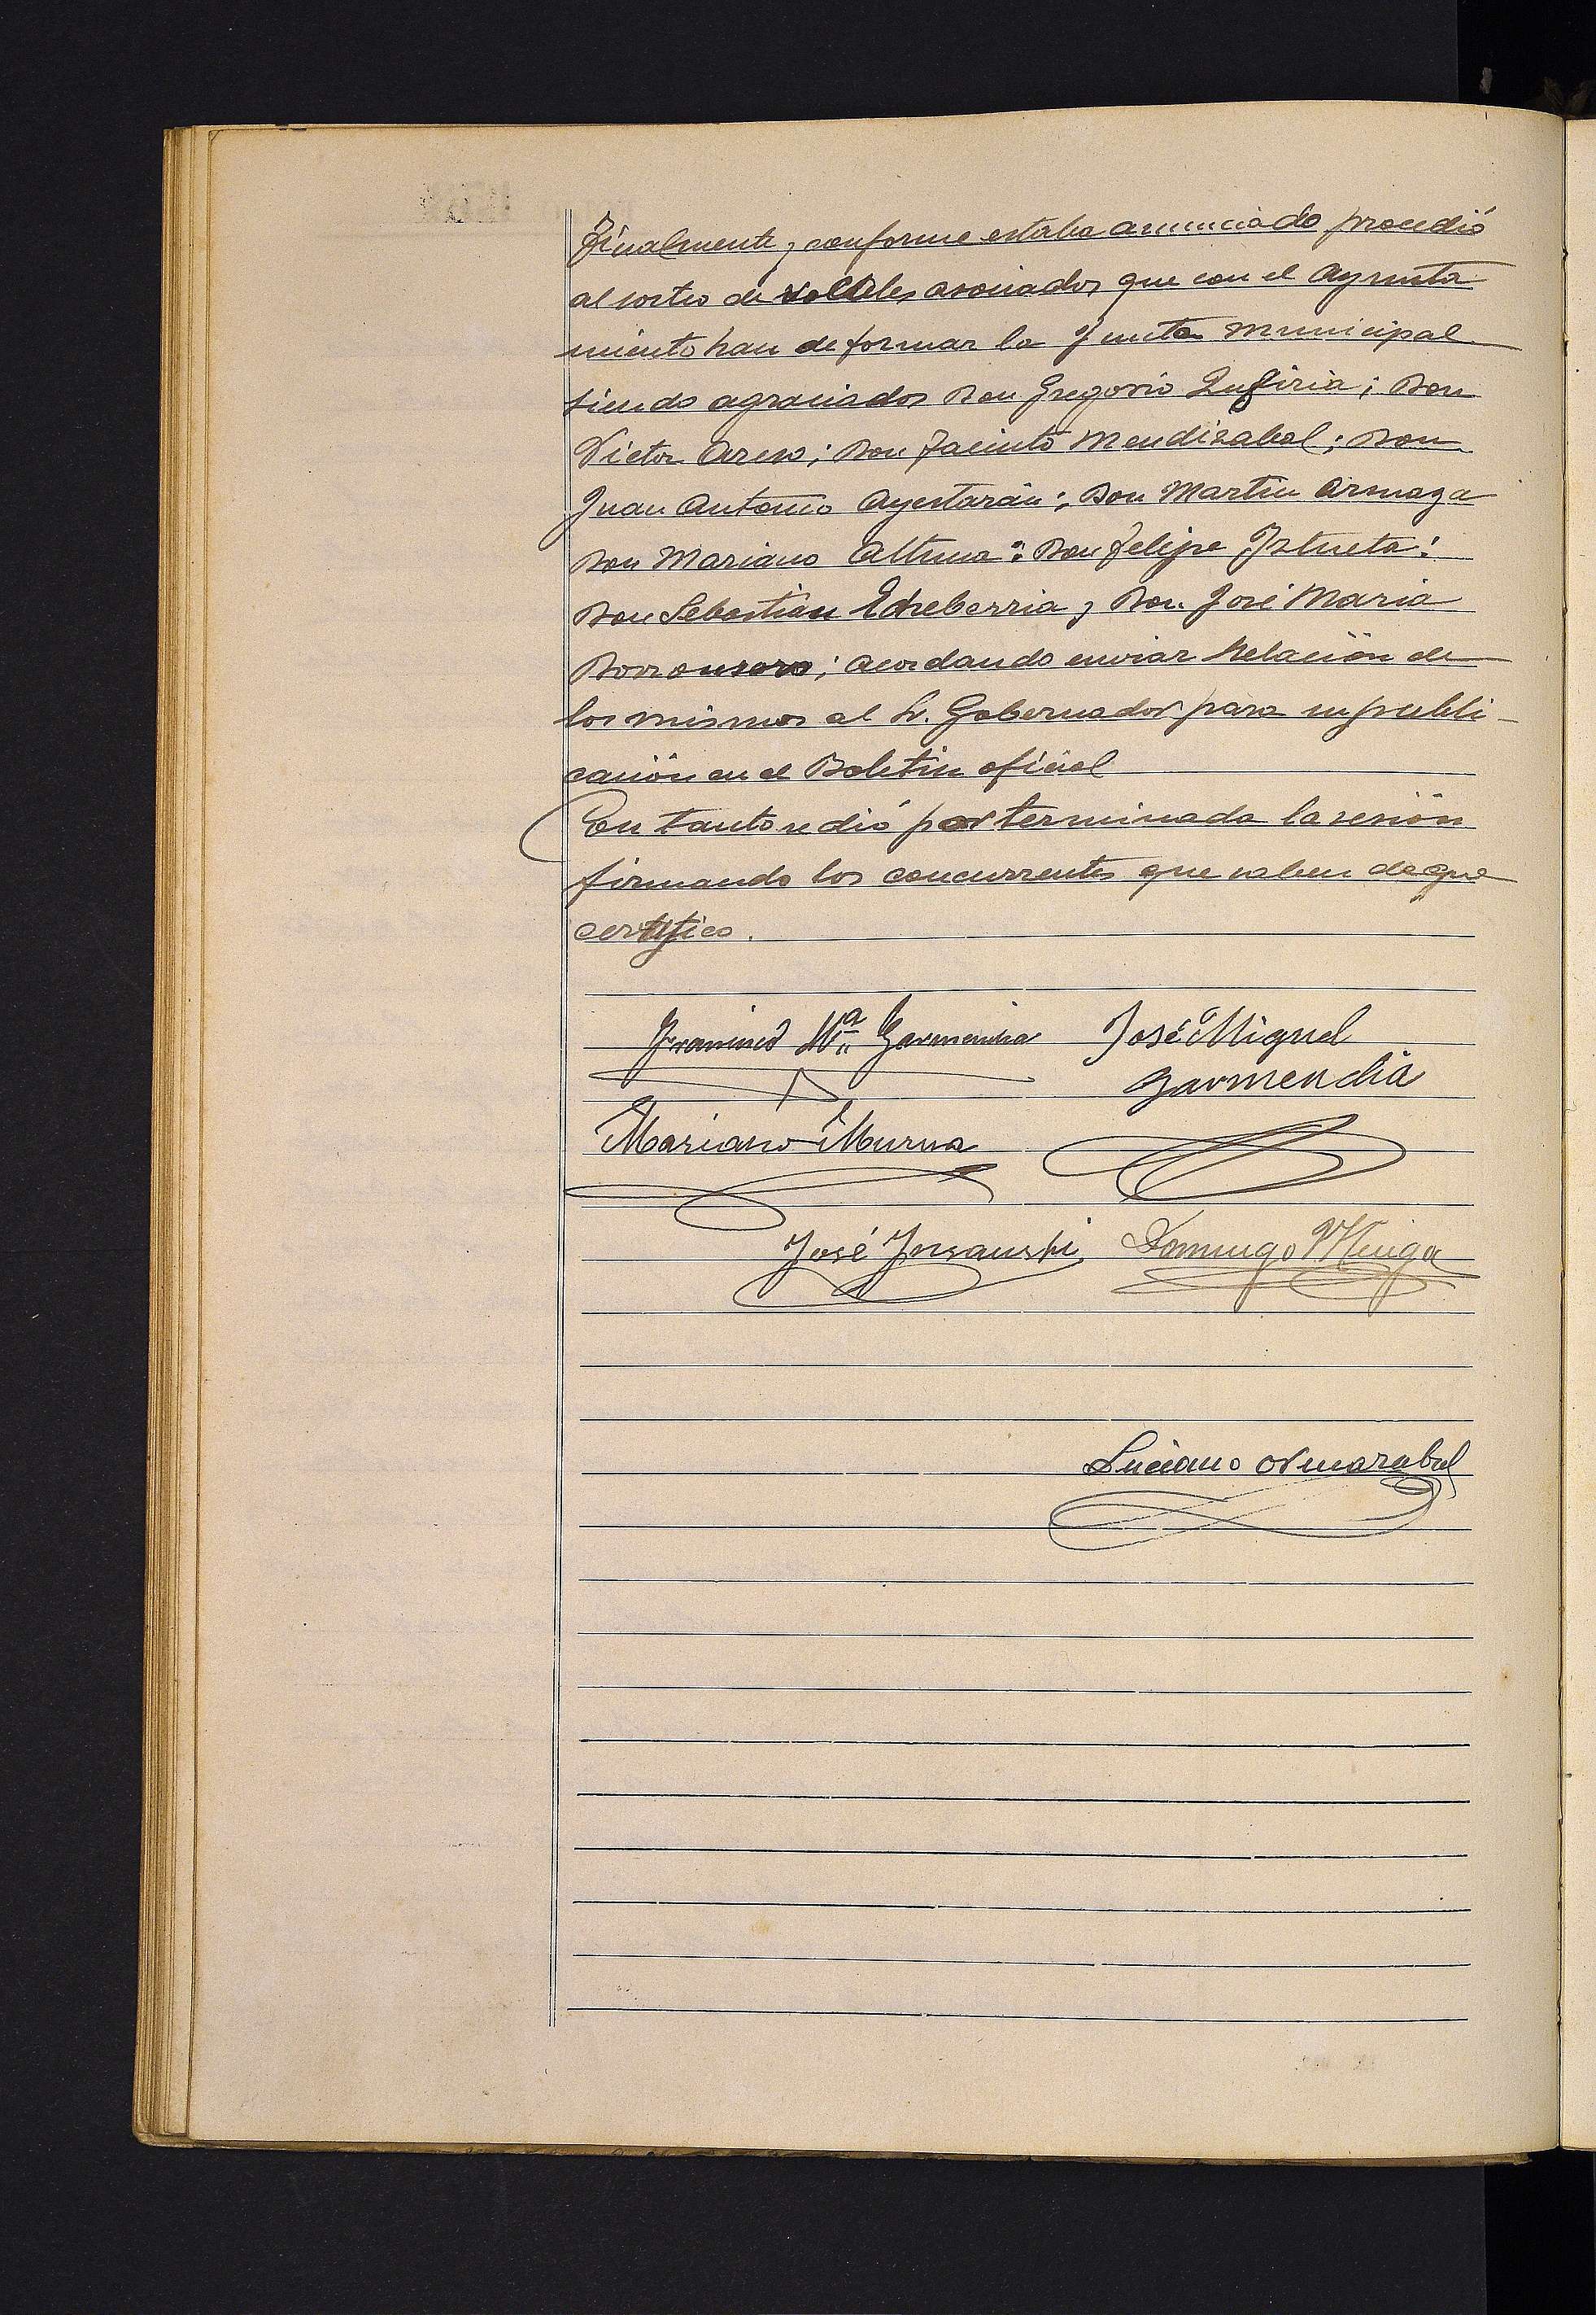 Finalmente, conforme estaba anunciado procedió
al sorteo de vocales asociados que con el Ayunta
miento han de formar la Junta municipal
siendo agraciados Don Gregorio Don
Victor Areso; Don Jacinto Mendizabal; Don
Juan Antonio Ayestarán; Don Martin
Don Mariano Altuna; Don Felipe Iztueta;
Don Sebastián Echeberria y Don José Maria
acordando enviar relación de
los mismos al Sr. Gobernador para su publi-
cación en el Boletin oficial
En tanto se dió por terminada la sesión
firmando los concurrentes que saben de que
certifico.
Francisco Mª Garmendia José Miguel
Garmendia
Mariano Murua
José Insausti Domingo
Luciano Ormazabal